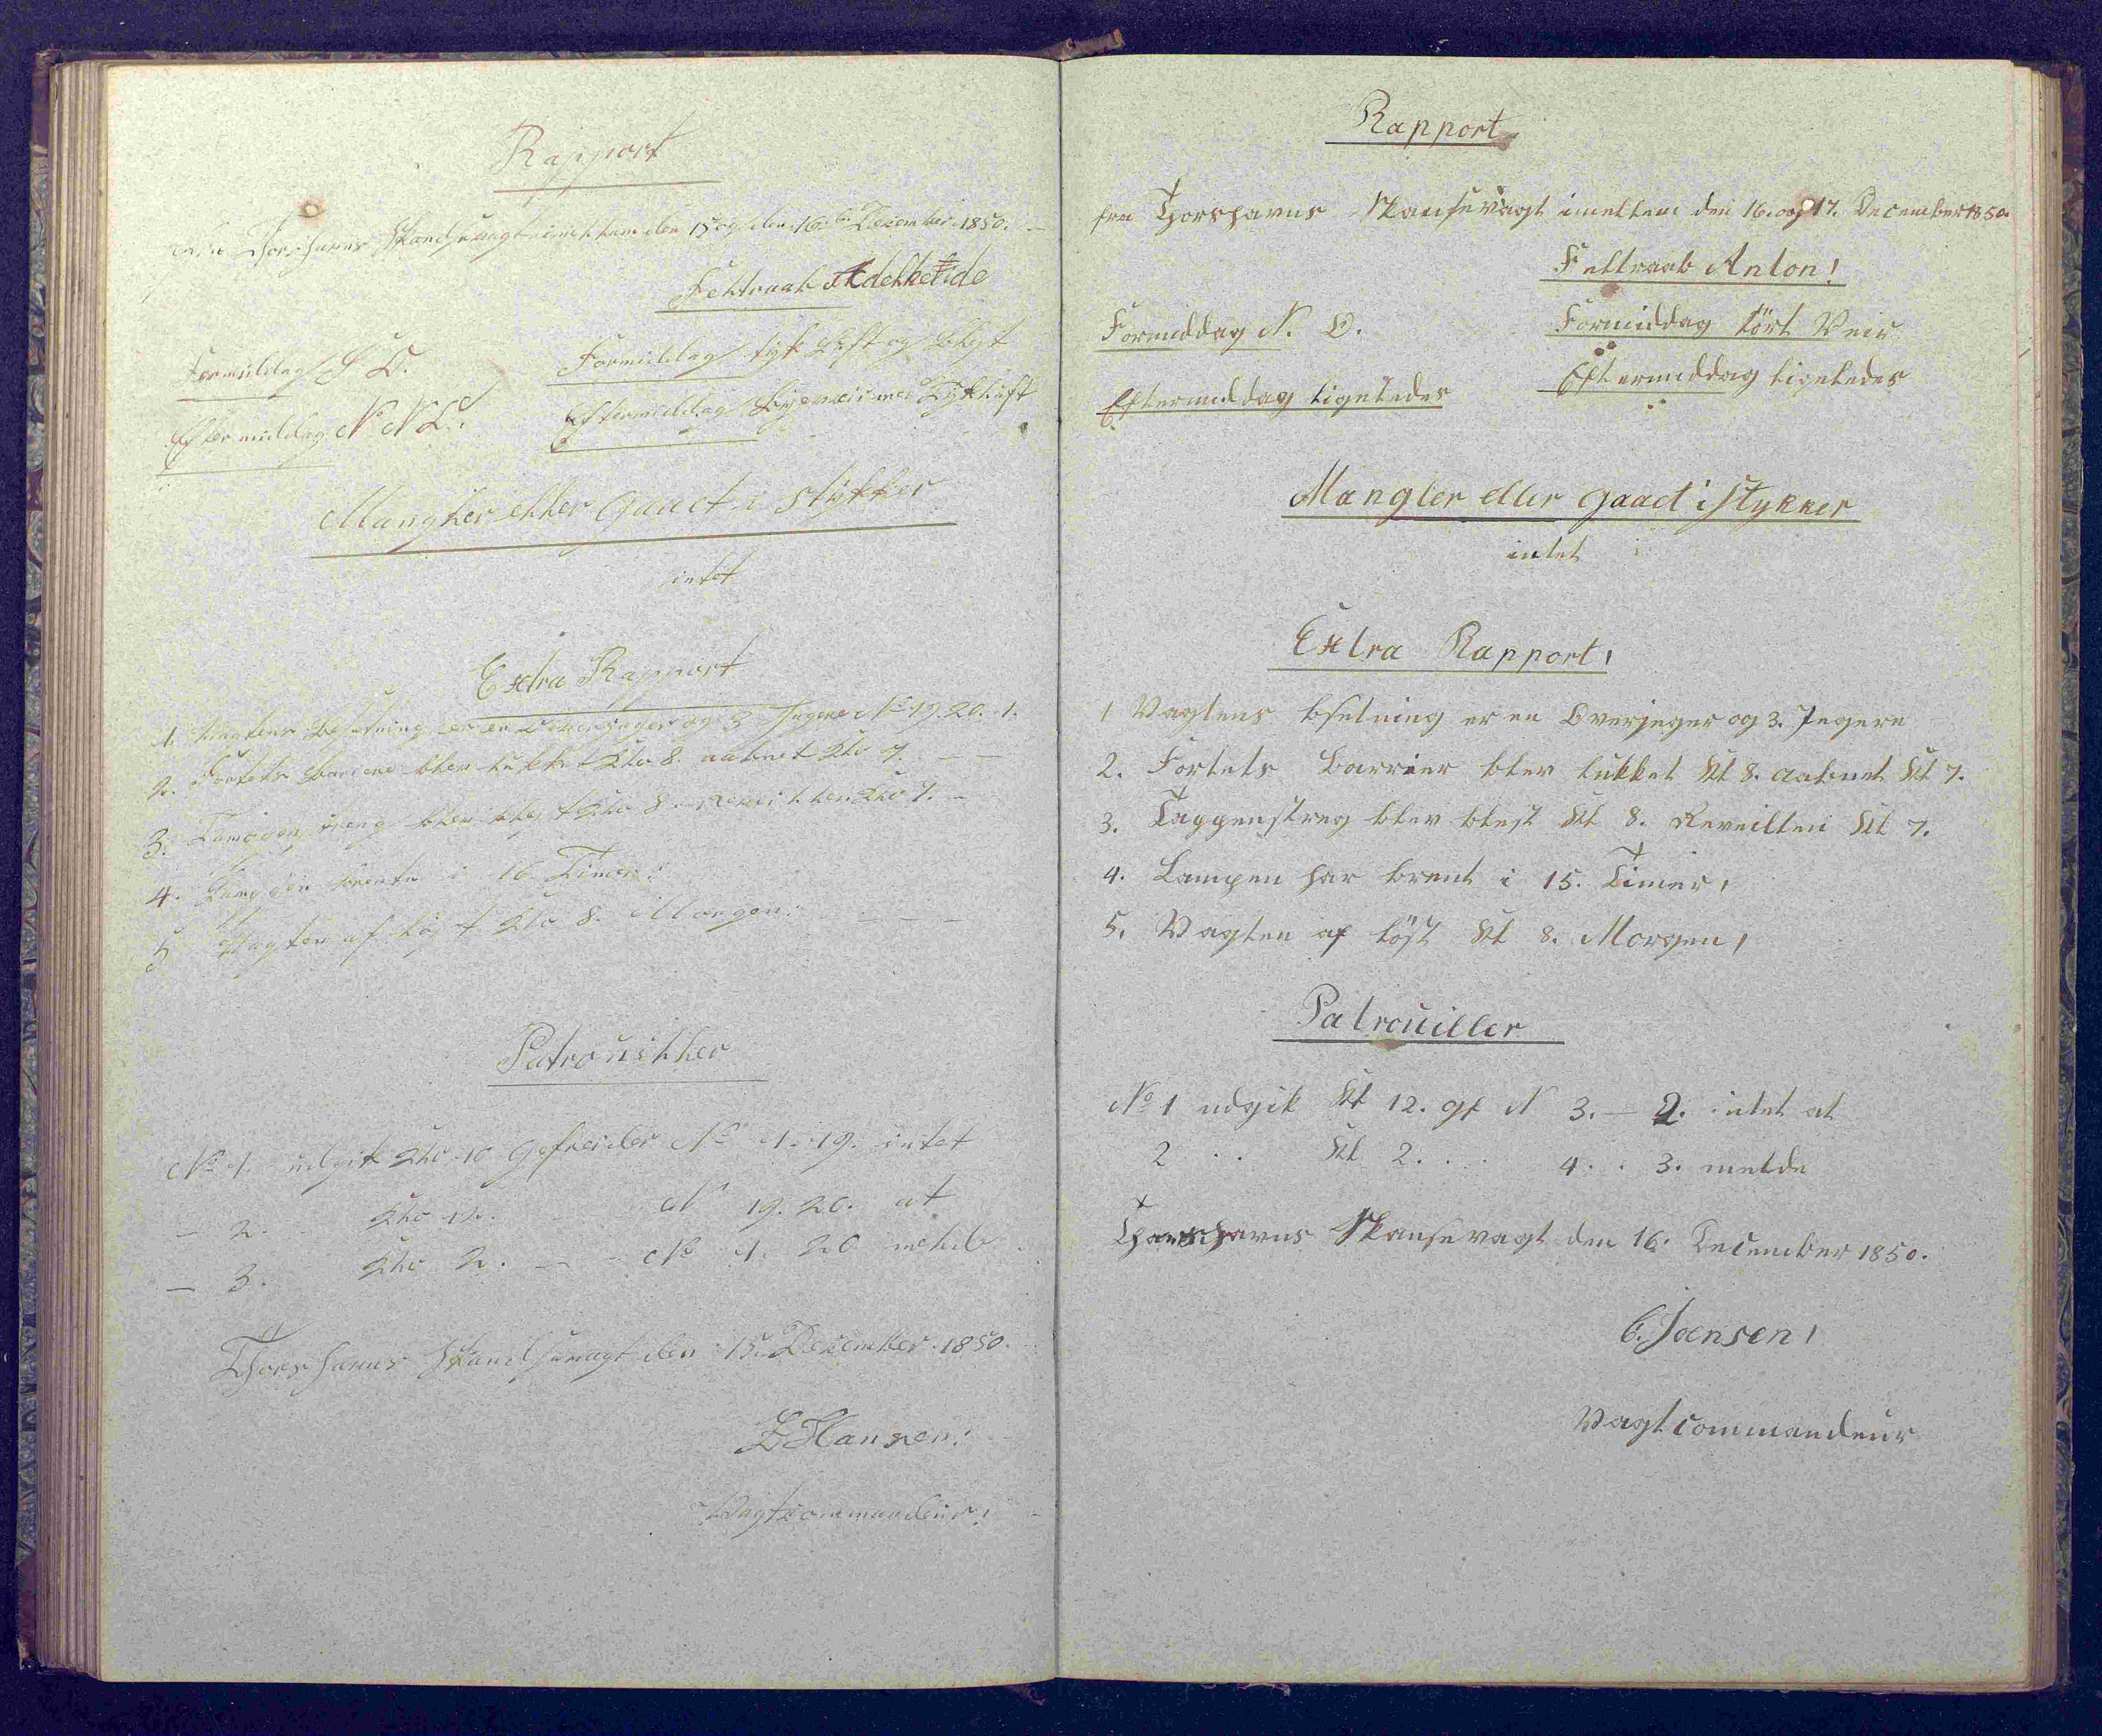 Rapport
fra Thorshavns Skandsevagt imellem den 15 og den 16de December 1850.
Feltraab Adelheide
Formiddag S O.
Formiddag tyk Luft og Slyt
Eftermiddag N. N O.
Eftermiddag Bygeveir med Tykluft
Mangler eller gaaet i stykker
intet
Extra Rapport
1. Vagtens Besetning er en Overjeger og 3 Jegere No 19. 20. 1.
2. Fortets Bariere blev lukket Klo 8. aabnet Klo 7.
3. Tappenstreg blev blest Klo 8. Reveillen Klo 7.
4. Lampen brente i 16 Timer:
5 Vagten af løst Klo 8. Morgen:
Patrouiller
No 1. udgik Klo 10 Gefreider No 1. 19. intet
- 2. Klo 12. - N 19. 20. at
- 3. Klo 2. - - No 1. 20 melde
Thorshavns Skandsevagt den 15. December 1850.
Hansen:
Vagtcommandeur:
Rapport
fra Thorshavns Skansevagt imellem den 16. og 17. December 1850.
Feltraab Anton!
Formiddag N. O.
Formiddag tört Veir
Eftermiddag ligeledes
Eftermiddag ligeledes
Mangler eller gaaet i stykker
intet
Extra Rapport,
1 Vagtens bsetning er en Overjeger og 3. Jegere
2. Fortets Barrier blev lukket Kl 8. aabnet Kl 7.
3. Tappenstreg blev blest Kl 8. Reveillen Kl 7.
4. Lampen har brent i 15. Timer,
5. Vagten af löst Kl 8. Morgen,
Patrouiller
No 1 udgik Kl 12. gf N 3. - 2. intet at
2 . . Kl 2. . . 4. . 3. melde
Thorshavns Skansevagt den 16. December 1850.
C. Joensen,
Vagtcommandeur